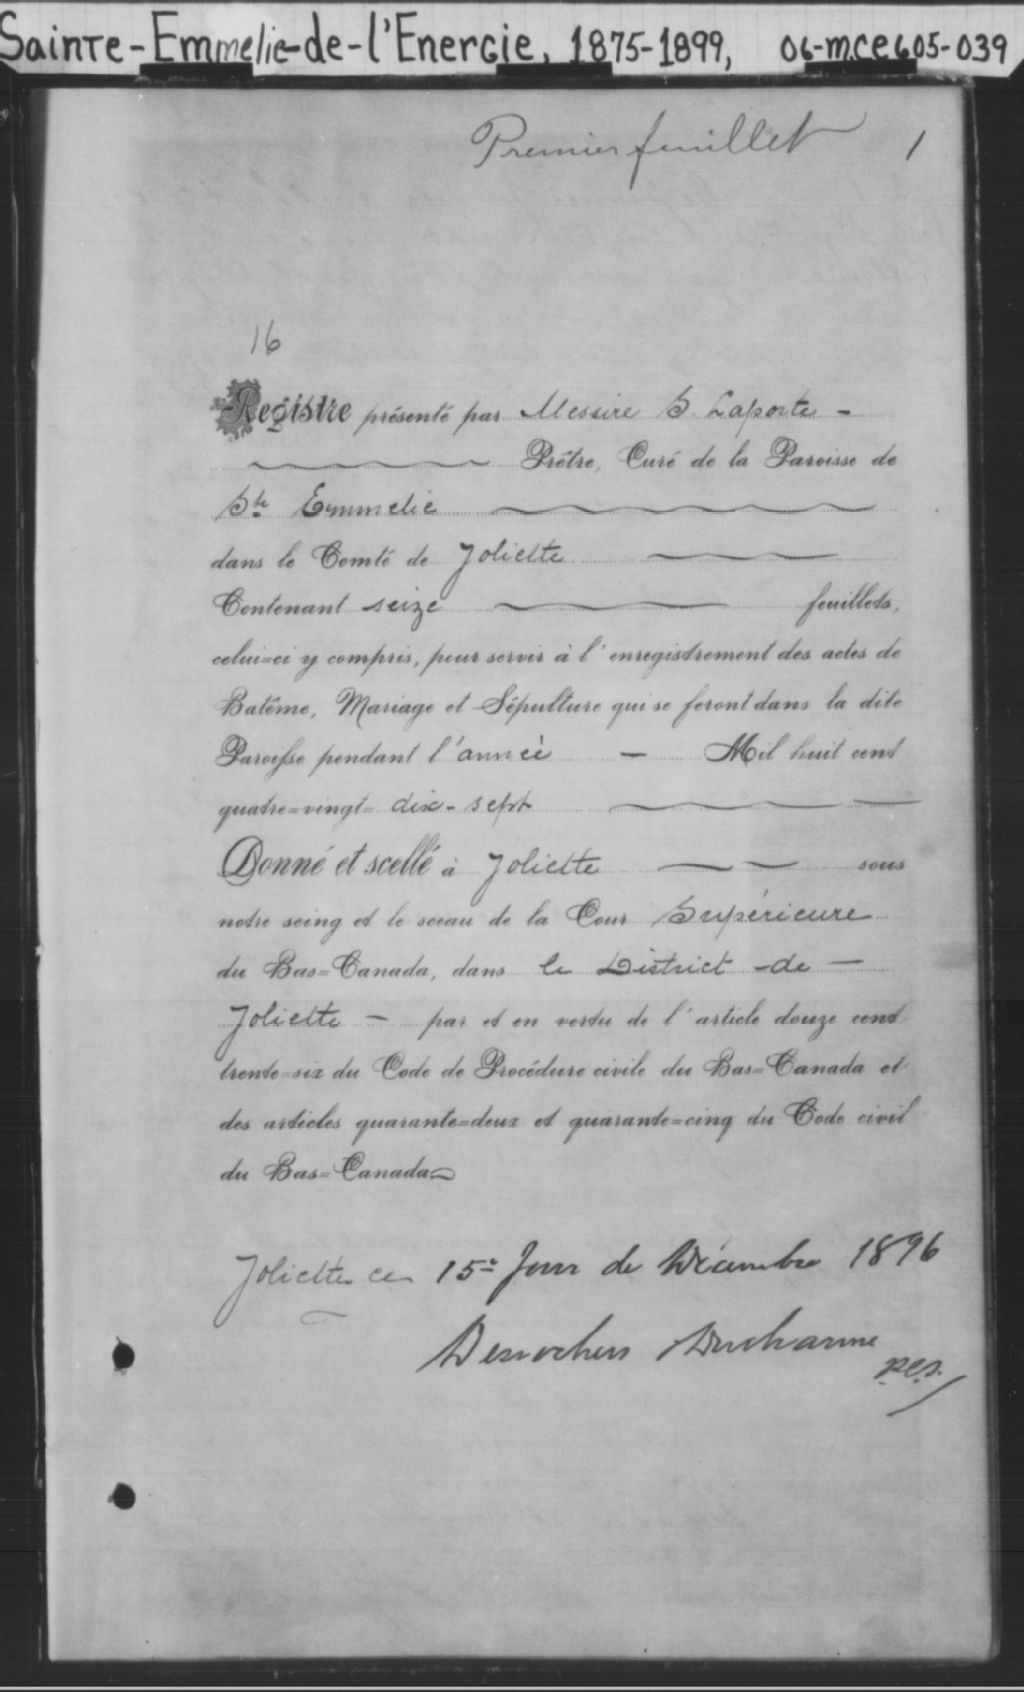 Sainte-Emmelie-de-l'Energie, 1875-1899, 06-M.CE605-039
Premier feuillet 1
16
Registre présenté par Messire S. Laporte -
Prêtre, Curé de la Paroisse de
Ste Emmelie
dans le Comté de Joliette
Contenant seize feuillets,
celui=ci y compris, pour servir à l'enregistrement des actes de
Batême, Mariage et Sépulture qui se feront dans la dite
Paroisse pendant l'année - Mil huit cent
quatre=vingt= dix-sept
Donné et scellé à Joliette sous
notre seing et le sceau de la Cour Supérieure
du Bas=Canada, dans le District -de-
Joliette - par et en vertu de l'article douze cent
trente=six du Code de Procédure civile du Bas=Canada et
des articles quarante=deux et quarante=cinq du Code civil
du Bas=Canada
Joliette ce 15e Jour de Décembre 1896
Desrochers Ducharme
p.c.s.